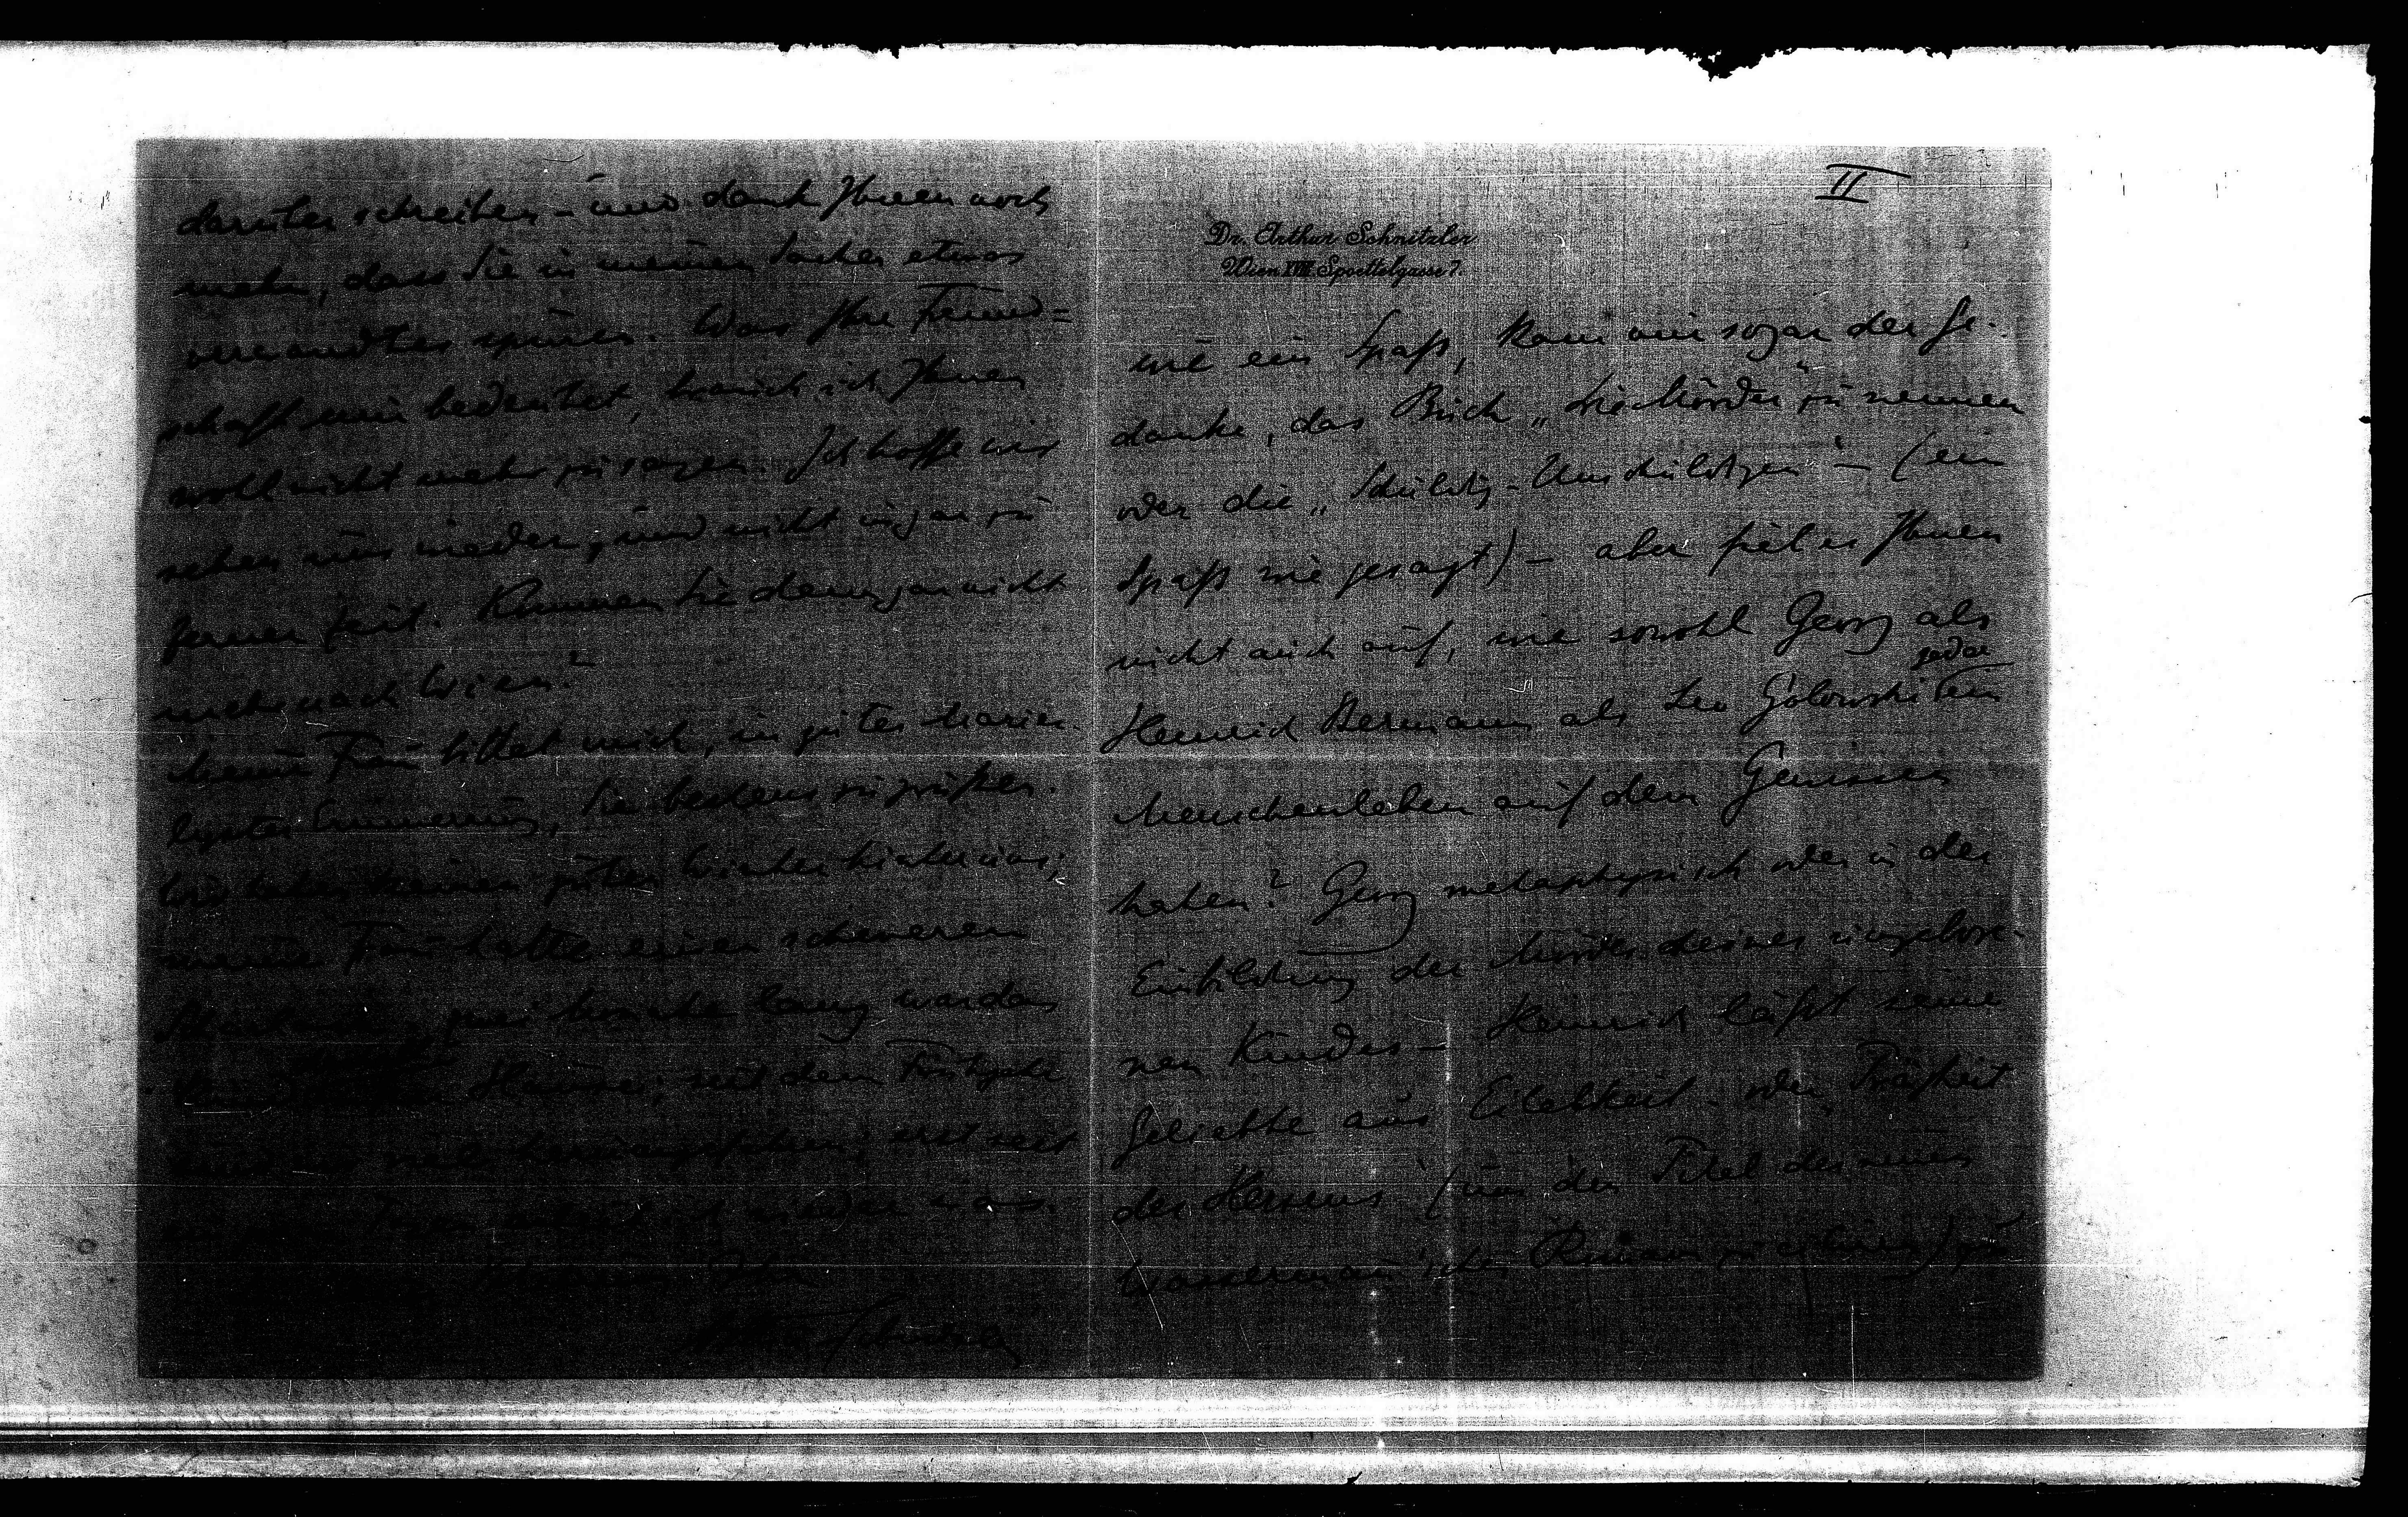 darüber schreiben – und dank Ihnen noch
mehr, dass Sie in meinen Sachen etwas
verwandtes spüren. Was Ihre Freund=
schaft mir bedeutet, brauch ich Ihnen
wohl nicht mehr zu sagen. Ich hoffe wir
sehen uns wieder, und nicht in gar zu
ferner Zeit. Kommen Sie denn gar nicht
mehr nach Wien?
Meine Frau bittet mich, in guter Marien-
lyster Erinnerung, Sie bestens zu grüßen.
Wir haben keinen guten Winter hinter uns;
meine Frau hatte einen schweren
Scharlach, zwei Monate lang war das
Hause; seit dem Frühjahr
erst seit
wieder
Ihr
Arthur Schnitzler
II
Dr. Arthur Schnitzler
Wien XVIII. Spoettelgasse 7.
wie ein Spaß, kam mir sogar der Ge-
danke, das Buch „Die Mörder“ zu nennen
oder die „Schuldig-Unschuldigen“ – (ein
Spaß wie gesagt) – aber fiel es Ihnen
nicht auch auf, wie sowohl Georg als
Heinrich Bermann als Leo Golowski jeder ein
Menschenleben auf dem Gewissen
haben? Georg metaphysisch oder in der
Einbildung der Mörder seines ungebore-
nen Kindes – Heinrich läßt seine
Geliebte aus Eitelkeit – oder „Trägheit
des Herzens“ (um den Titel des neuen
Wassermann'schen Romans zu citiren) zu